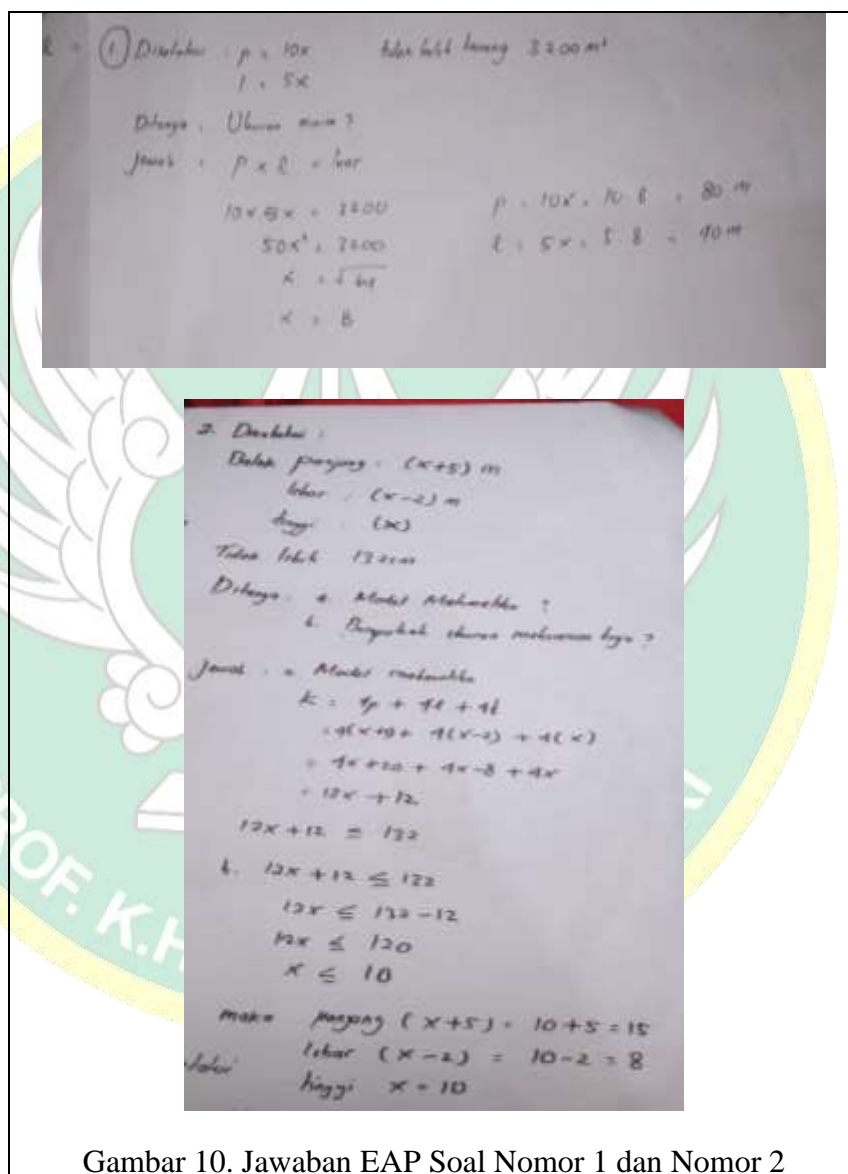 ① Diketahui : p = 10x tidak lebih 3200 m²
l = 5x
Ditanya : Ukuran
Jawab : p x l = luas
10x 5x = 3200
50x² = 3200
x = √64
x = 8
p = 10x = 10 . 8 = 80 m
l = 5x = 5 . 8 = 40 m
2. Diketahui :
Balok panjang : (x+5) m
lebar : (x-2) m
tinggi : (x)
Tidak lebih 132 cm
Ditanya : a. Model Matematika ?
b. ukuran maksimum ?
Jawab : a. Model matematika
K = 4p + 4l + 4t
= 4(x+5) + 4(x-2) + 4(x)
= 4x + 20 + 4x - 8 + 4x
= 12x + 12
12x + 12 = 132
b. 12x + 12 ≤ 132
12x ≤ 132 - 12
12x ≤ 120
x ≤ 10
maka panjang (x+5) = 10+5 = 15
lebar (x-2) = 10-2 = 8
tinggi x = 10
PROF. K.H
Gambar 10. Jawaban EAP Soal Nomor 1 dan Nomor 2